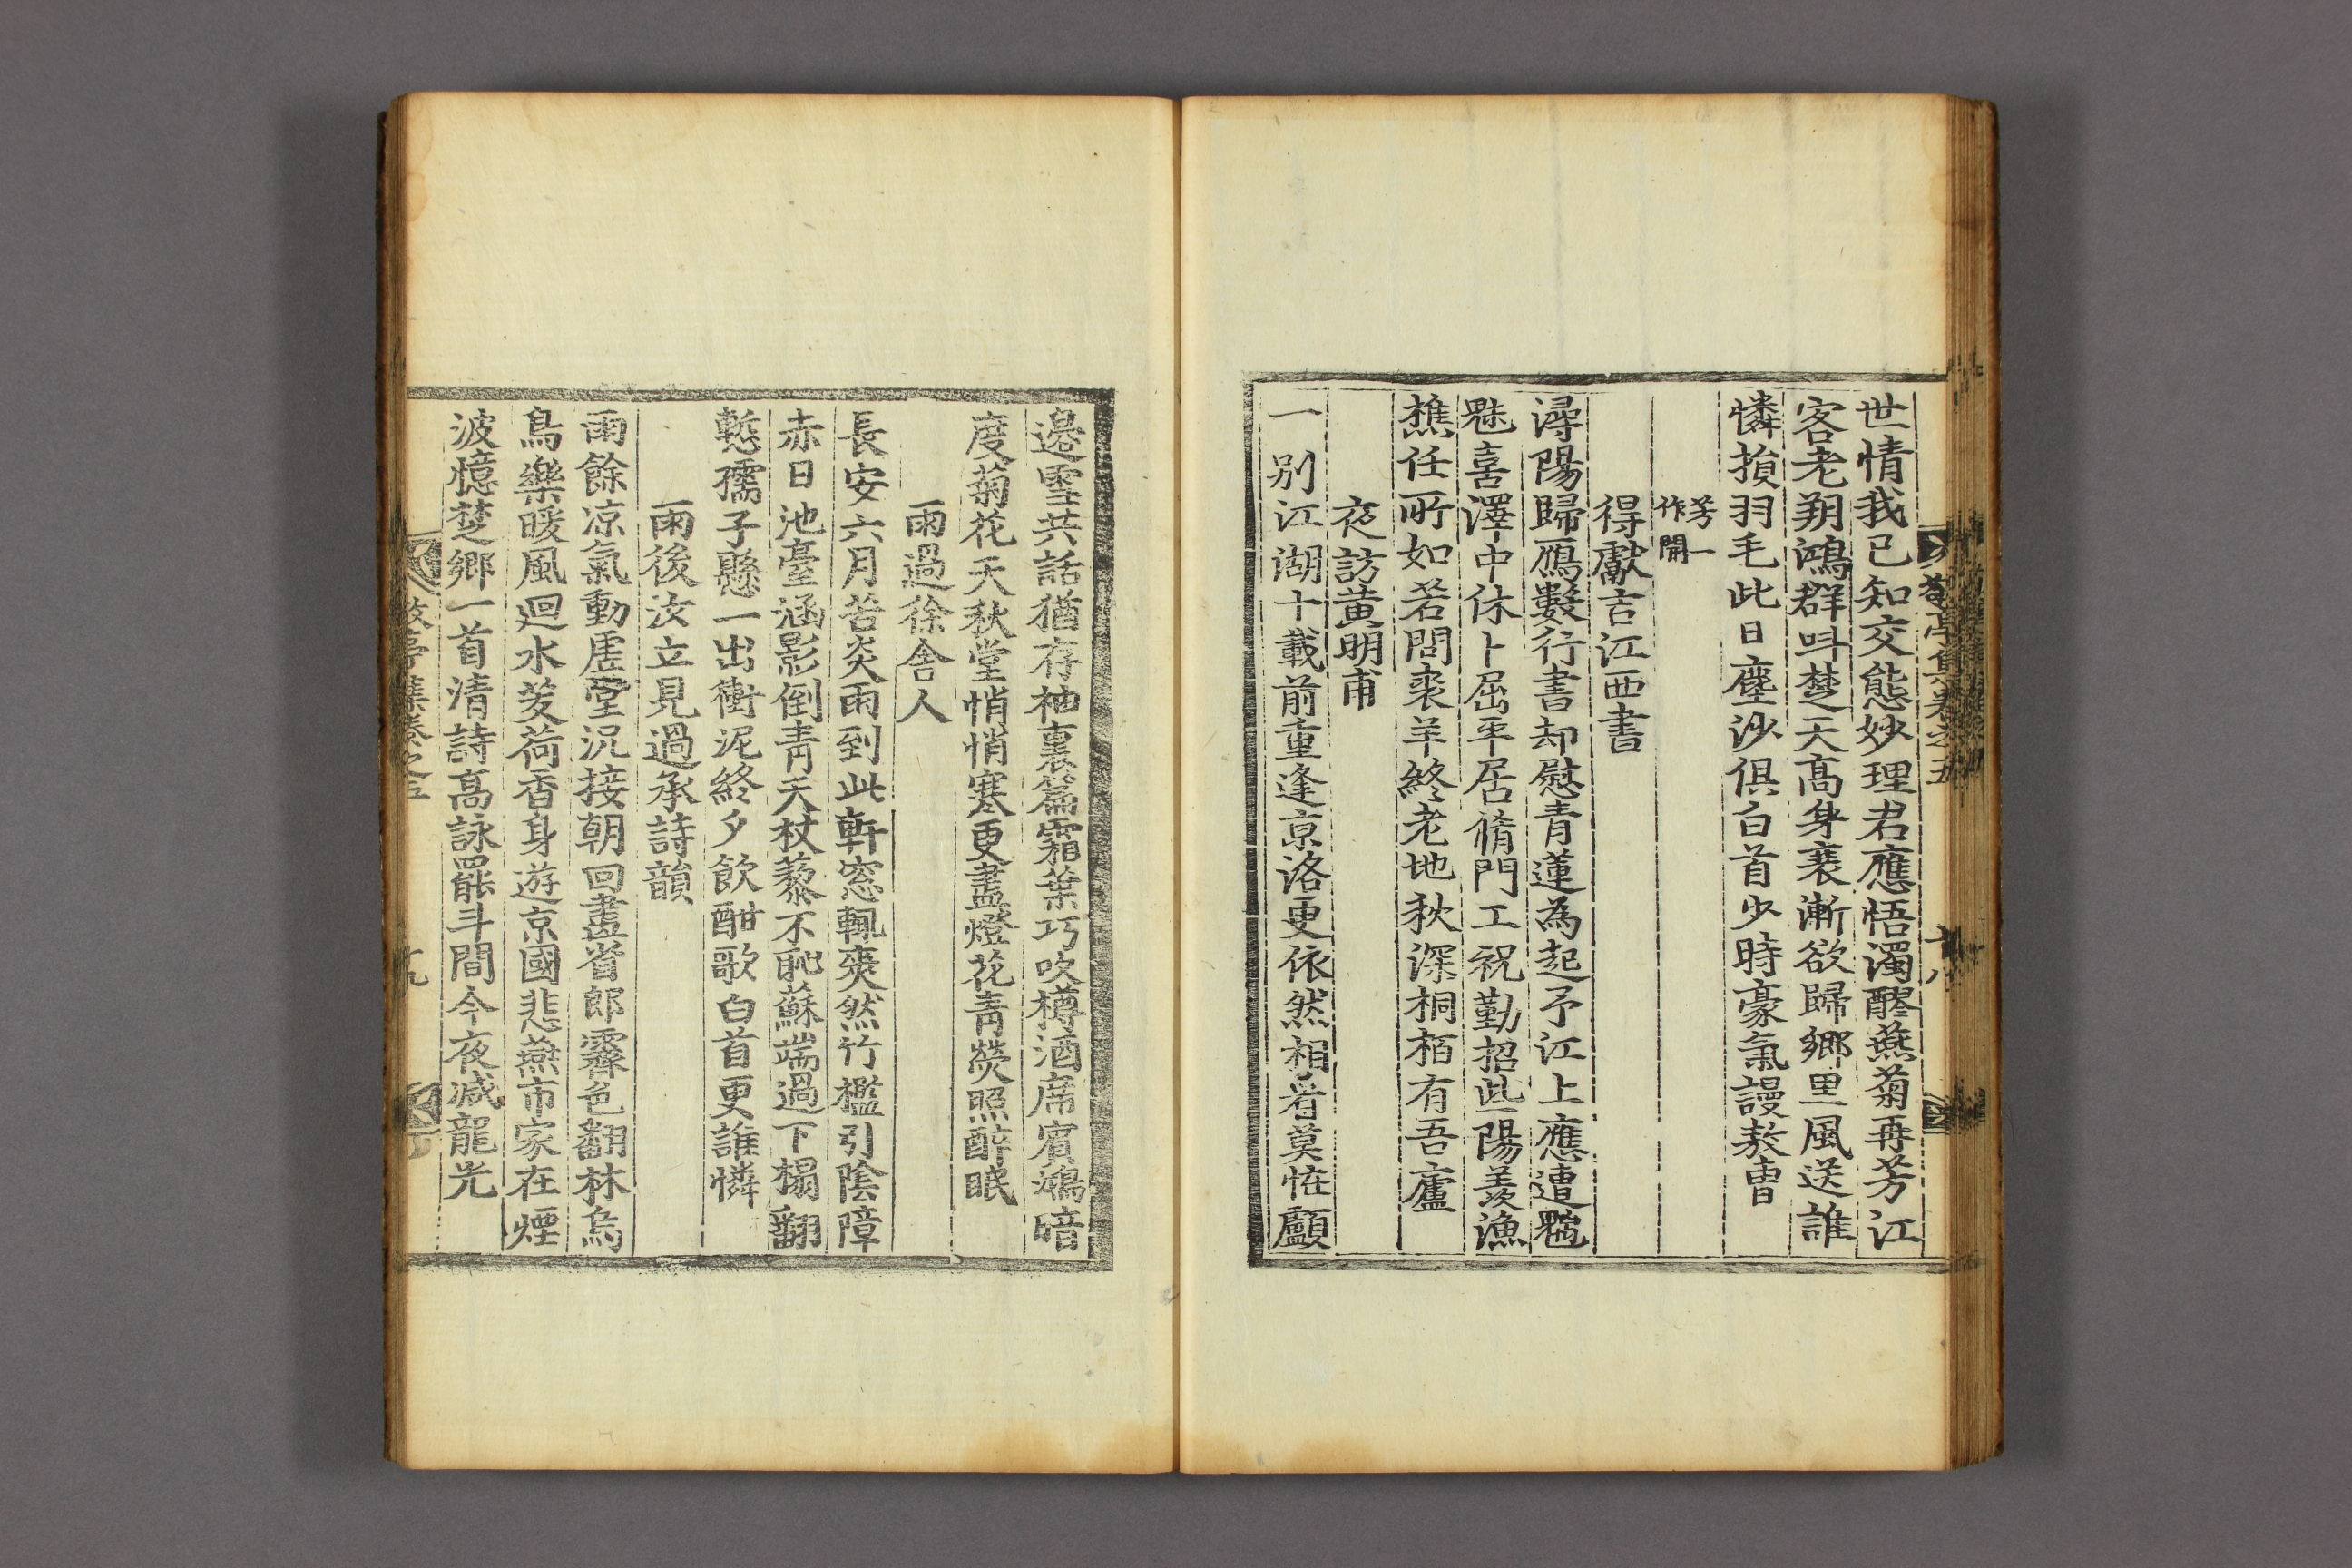 世情我已知交態妙理君應悟濁醪燕菊再芳江
客老朔鴻群叫楚天高身衰漸欲歸鄉里風送誰
憐損羽毛此日塵沙俱白首少時豪氣謾敖曹
芳一
作開
得獻吉江西書
潯陽歸鴈數行書却慰青蓮為起予江上應遭魑
魅喜澤中休卜屈平居脩門工祝勤招些陽羨漁
樵任所如若問裘羊終老地秋深桐栢有吾廬
夜訪黃明甫
一別江湖十載前重逢京洛更依然相看莫恠顱
邊雪共話猶存袖裏篇霜葉巧吹樽酒席賓鴻暗
度菊花天秋堂悄悄寒更盡燈花青熒照醉眠
雨過徐舍人
長安六月苦炎雨到此軒窓輒爽然竹檻引陰障
赤日池臺涵影倒青天杖藜不恥蘇端過下榻翻
慙孺子懸一出衝泥終夕飲酣歌白首更誰憐
雨後汝立見過承詩韻
雨餘凉氣動虛堂況接朝回畫省郎霽色翻林烏
鳥樂暖風迴水芰荷香身遊京國悲燕市家在煙
波憶楚鄉一首清詩高詠罷斗間今夜減龍光